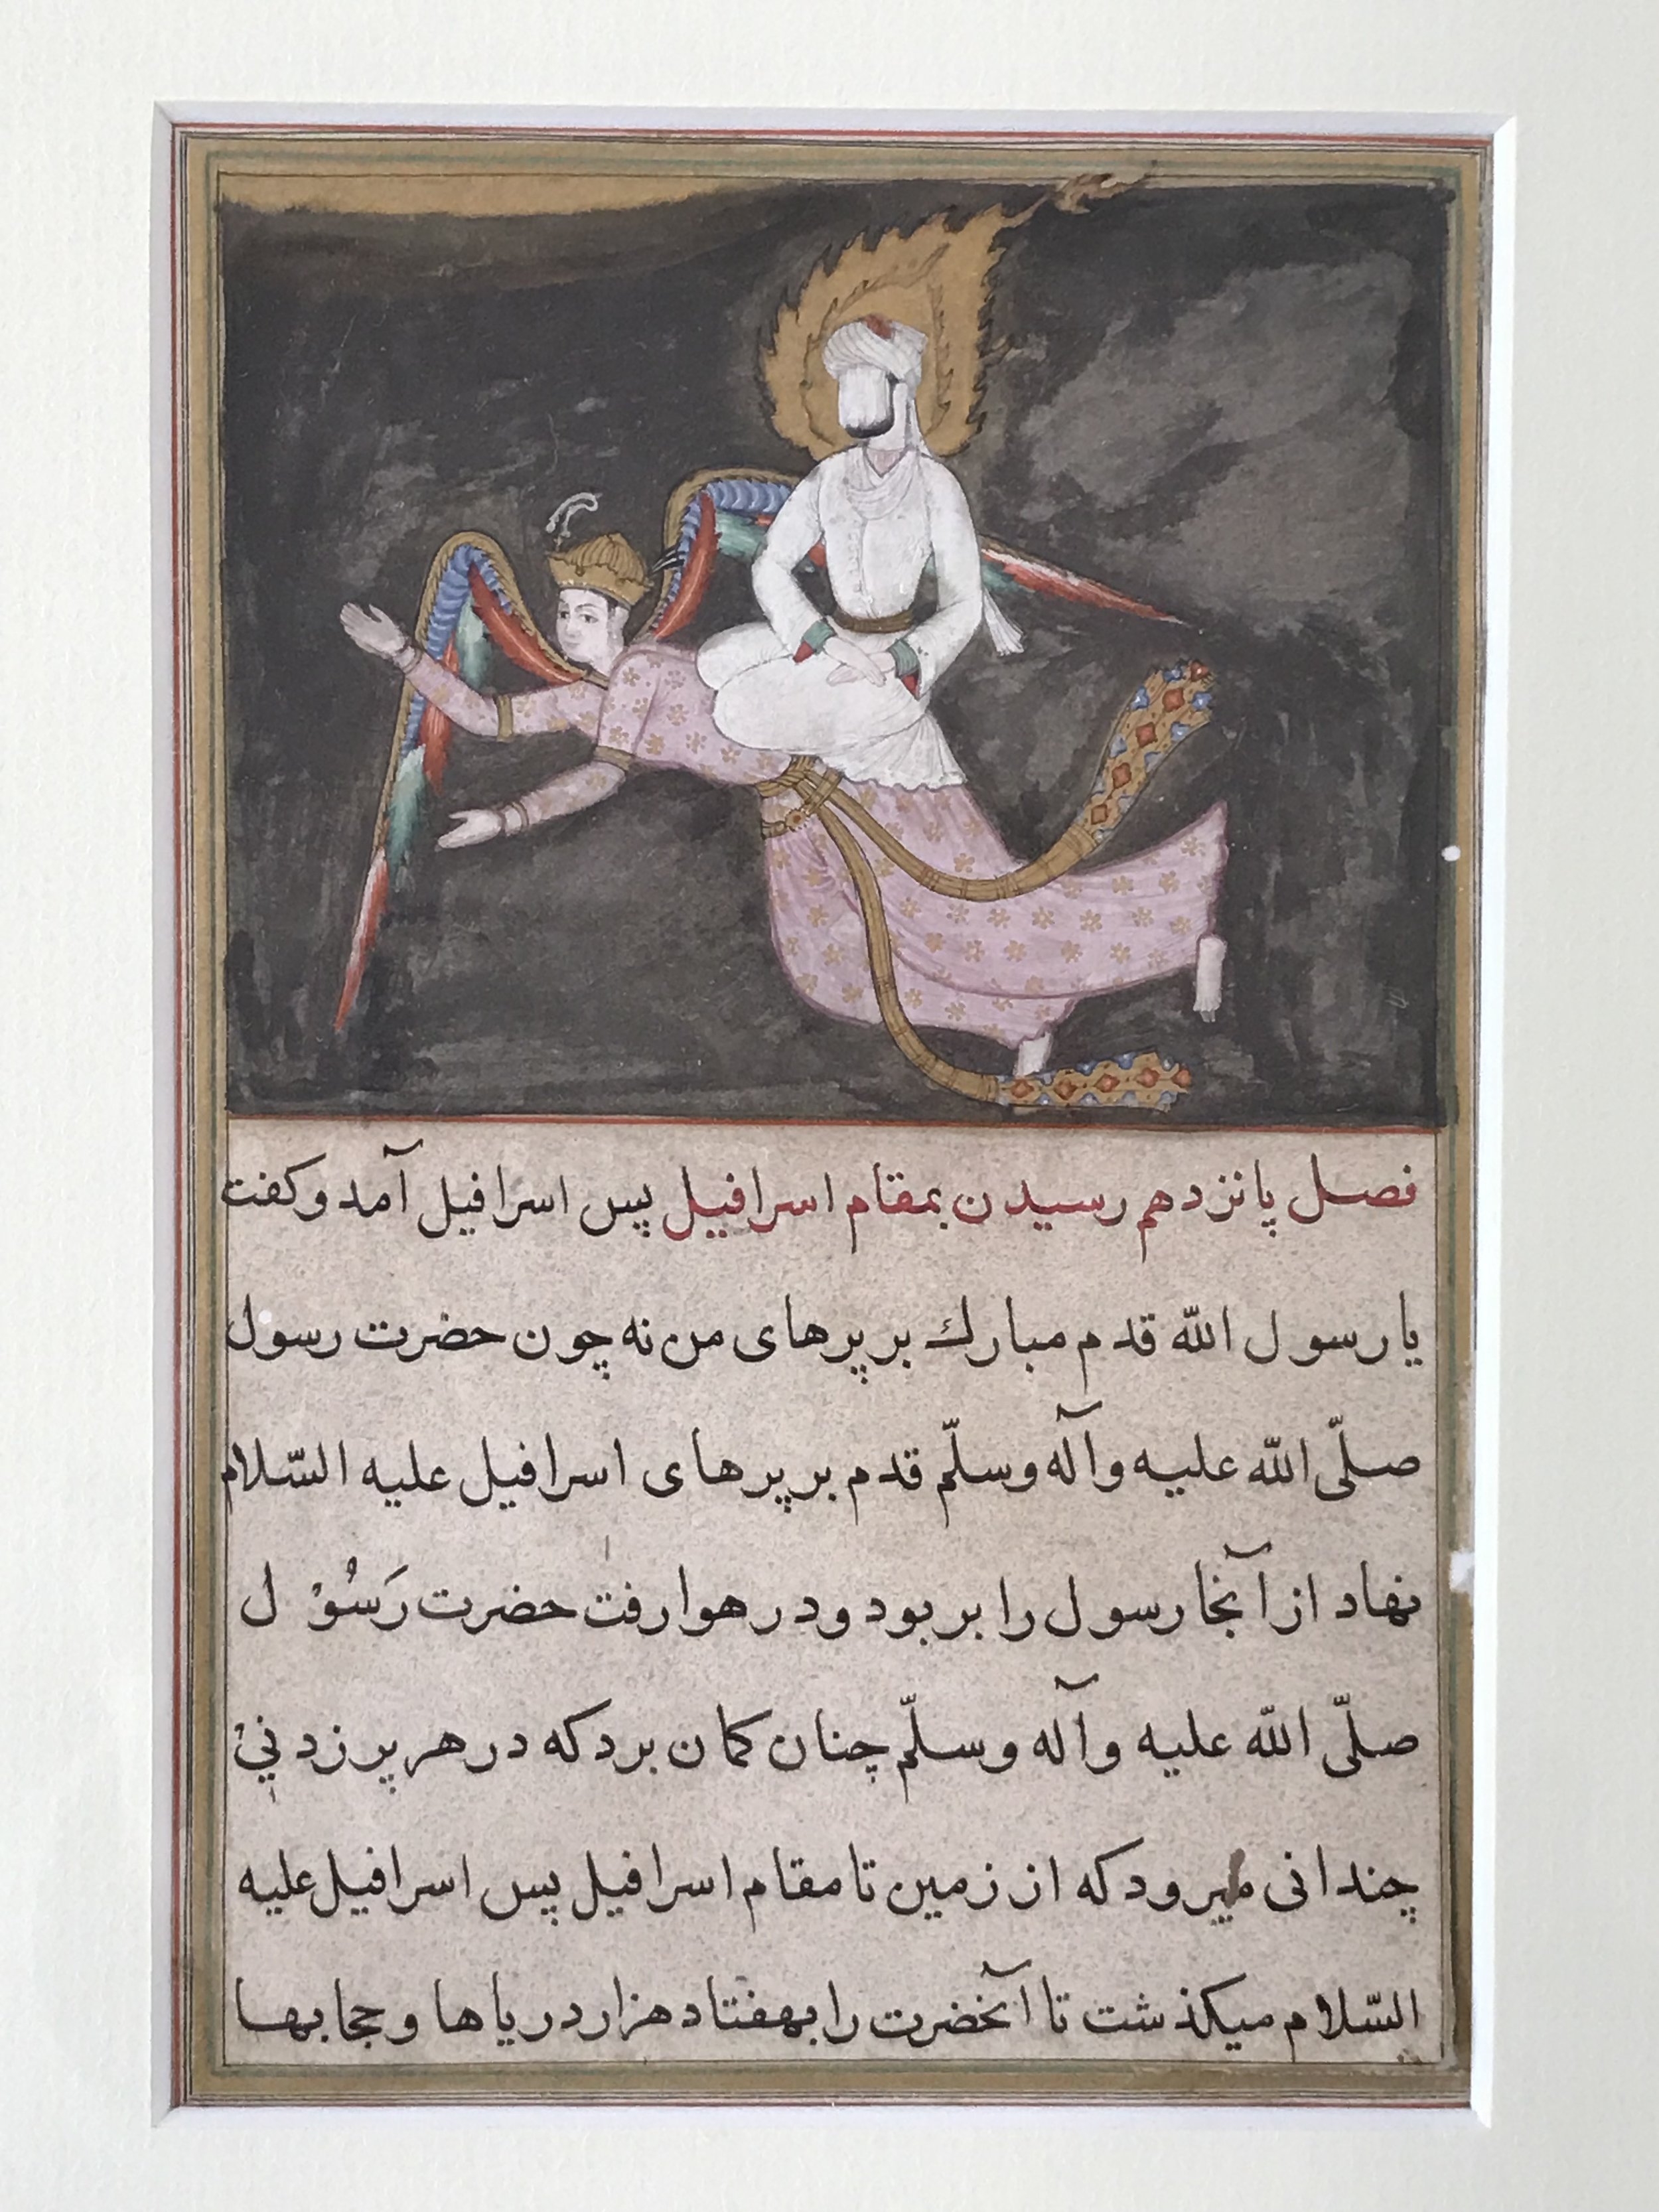 فصل پانزدهم رسیدن بمقام اسرافیل پس اسرافیل آمد وکفت
یا رسول اللّه قدم مبارك بر پرهای من نه چون حضرت رسول
صلّی اللّه علیه وآله وسلّم قدم بر پرهای اسرافیل علیه السّلام
نهاد از آنجا رسول را بر بود و در هوا رفت حضرت رَسُوْل
صلّی اللّه علیه وآله وسلّم چنان کمان برد که در هر پر زدنیْ
چندانی میرود که از زمین تا مقام اسرافیل پس اسرافیل علیه
السّلام میکذشت تا آنحضرت را بهفتاد هزار دریاها و حجابها